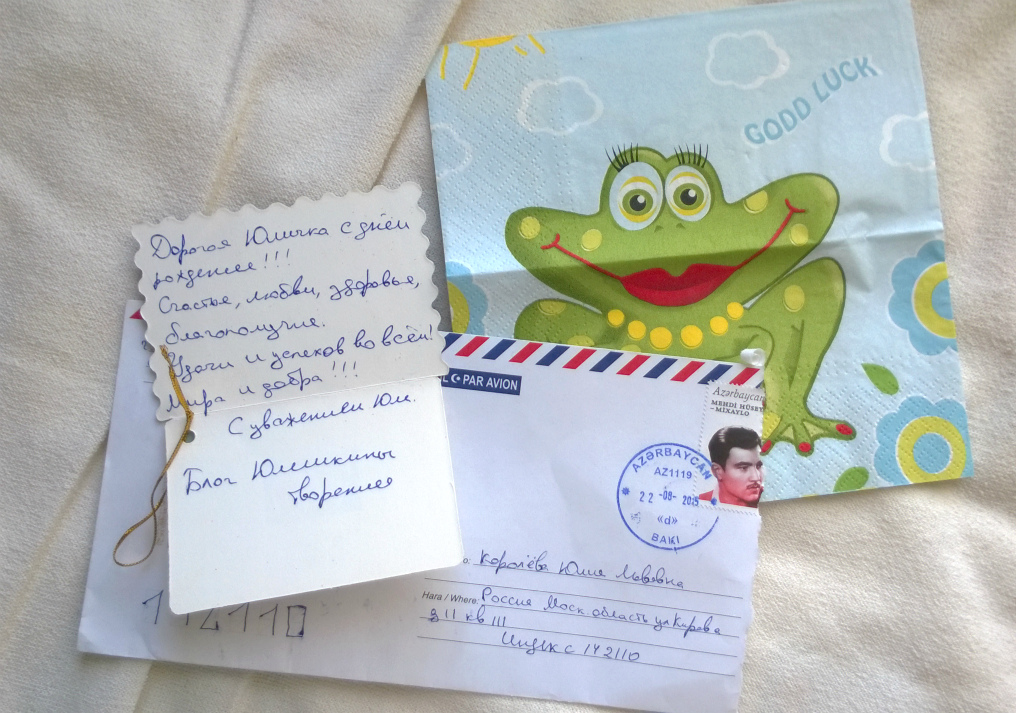 GODD LUCK
Дорогая Юличка с днём
рождение!!!
Счастье, любви, здоровье,
благополучие.
Удачи и успехов во всём!
Мира и добра!!!
С уважением Юл.
Блог Юлишкины
творение
PAR AVION
Azərbaycan
MEHDİ HÜSEY
- MİXAYLO
AZƏRBAYCAN
AZ1119
22-08-2015
«d»
BAKI
Королёва Юлия Львовна
Hara / Where: Россия Моск область ул Кирова
д 11 кв 111
Индекс 142110
142110